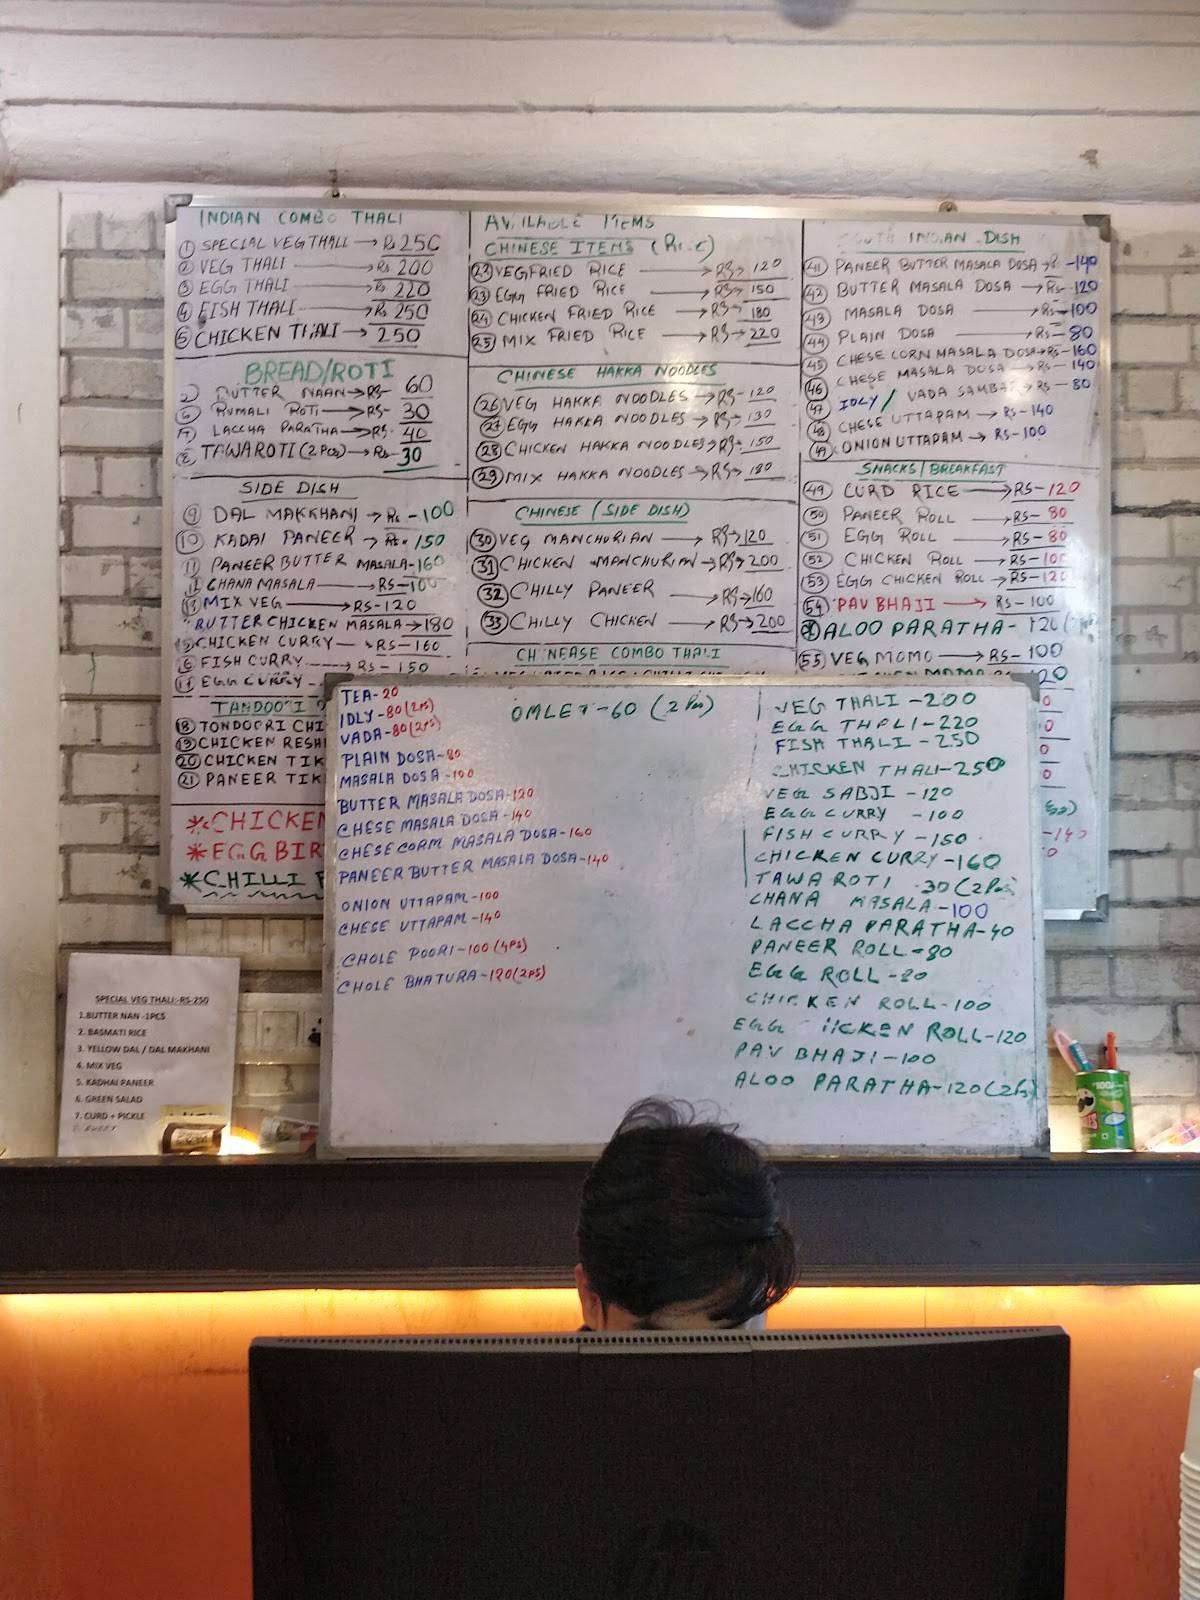 INDIAN COMBO THALI
① SPECIAL VEG THALL → Rs 250
② VEG THALI → Rs 200
③ EGG THALI Rs 220
④ FISH THALI Rs 250
⑤ CHICKEN THALI → 250
BREAD/ROTI
BUTTER NAAN → RS- 60
RUMALI ROTI → RS- 30
LACCHA PARATHA → RS- 40
TAWA ROTI (2 Pcs) → Rs 30
SIDE DISH
⑨ DAL MAKKHANI → Rs -100
⑩ KADAI PANEER → Rs- 150
11 PANEER BUTTER MASALA-160
CHANA MASALA RS-100
13 MIX VEG → RS-120
BUTTER CHICKEN MASALA → 180
CHICKEN CURRY RS-160
FISH CURRY RS-150
EGG CURRY
TANDOORI
⑱ TONDOORI CHI
⑲ CHICKEN RESH
⑳ CHICKEN TIK
㉑ PANEER TIK
*CHICKEN
*EGG BIR
*CHILLI
AVAILABLE ITEMS
CHINESE ITEMS (RICE)
㉓ VEG FRIED RICE → RS→ 120
㉓ EGG FRIED RICE → RS→ 150
㉔ CHICKEN FRIED RICE → RS→ 180
㉕ MIX FRIED RICE → RS→ 220
CHINESE HAKKA NOODLES
㉖ VEG HAKKA NOODLES → RS→ 120
㉗ EGG HAKKA NOODLES → RS- 130
㉘ CHICKEN HAKKA NOODLES → RS- 150
㉙ MIX HAKKA NOODLES → RS→ 180
CHINESE (SIDE DISH)
㉚ VEG MANCHURIAN → RS→120
㉛ CHICKEN MANCHURIAN → RS→200
㉜ CHILLY PANEER → RS→160
㉝ CHILLY CHICKEN → RS→200
CHINEASE COMBO THALI
SOUTH INDIAN DISH
㊶ PANEER BUTTER MASALA DOSA → -140
㊷ BUTTER MASALA DOSA → RS-120
㊸ MASALA DOSA → RS-100
㊹ PLAIN DOSA RS-80
㊺ CHESE CORN MASALA DOSA→RS-160
㊻ CHESE MASALA DOSA → RS-140
㊼ IDLY / VADA SAMBAR → RS-80
㊽ CHESE UTTAPAM → RS-140
㊾ ONION UTTAPAM → RS-100
SNACKS/BREAKFAST
㊾ CURD RICE → RS-120
㊿ PANEER ROLL → RS-80
51 EGG ROLL → RS-80
52 CHICKEN ROLL → RS-100
53 EGG CHICKEN ROLL → RS-120
54 PAV BHAJI → RS-100
ALOO PARATHA- 120
55 VEG MOMO → RS-100
TEA-20
IDLY-80(2PS)
VADA-80(2PS)
PLAIN DOSA-80
MASALA DOSA-100
BUTTER MASALA DOSA-120
CHESE MASALA DOSA-140
CHESE CORM MASALA DOSA-160
PANEER BUTTER MASALA DOSA-140
ONION UTTAPAM-100
CHESE UTTAPAM-140
CHOLE POORI-100(4PS)
CHOLE BHATURA-120(2PS)
OMLET-60 (2 Ps)
VEG THALI-200
EGG THALI-220
FISH THALI-250
CHICKEN THALI-250
VEG SABJI-120
EGG CURRY -100
FISH CURRY-150
CHICKEN CURRY-160
TAWA ROTI 30(2Ps)
CHANA MASALA-100
LACCHA PARATHA-40
PANEER ROLL-80
EGG ROLL-80
CHICKEN ROLL-100
EGG HICKEN ROLL-120
PAV BHAJI-100
ALOO PARATHA-120(2Ps)
-140
SPECIAL VEG THALI:-RS-250
1.BUTTER NAN -1PCS
2. BASMATI RICE
3. YELLOW DAL / DAL MAKHANI
4. MIX VEG
5. KADHAI PANEER
6. GREEN SALAD
7. CURD + PICKLE